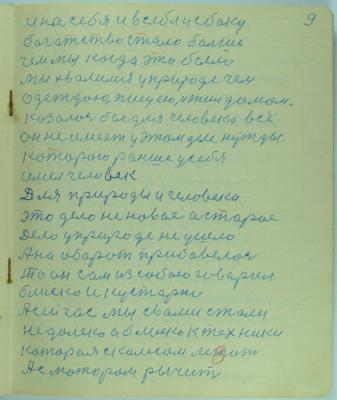 9
и на себя и в себя и с боку
богатство стало больше
чем мы когда это было
мы хвалимся у природе чем
одеждою, пищею, и тни домом.
казалося бы для человека всё
он не имеет у этом деле нужды.
которою раньше у себя
имел человек
Для природы и человека
это дело не новое а старое
Дело у природе не ушло
А на оборот прибавелося
То он сам из собою говарил
блиско и кустарно
А сейчас мы с вами стали
недолеко а блиско к технике
которая с колесом летит
А с мотором рычит